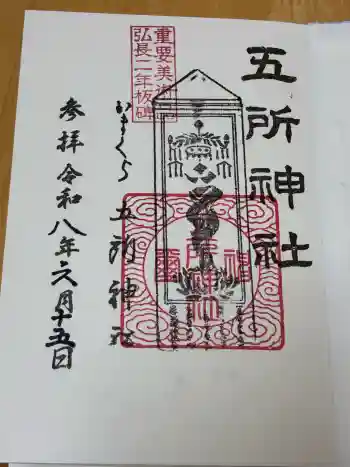 五所神社
重要美術品
弘長二年板碑
かまくら 五所神社
参拝 令和八年六月十五日